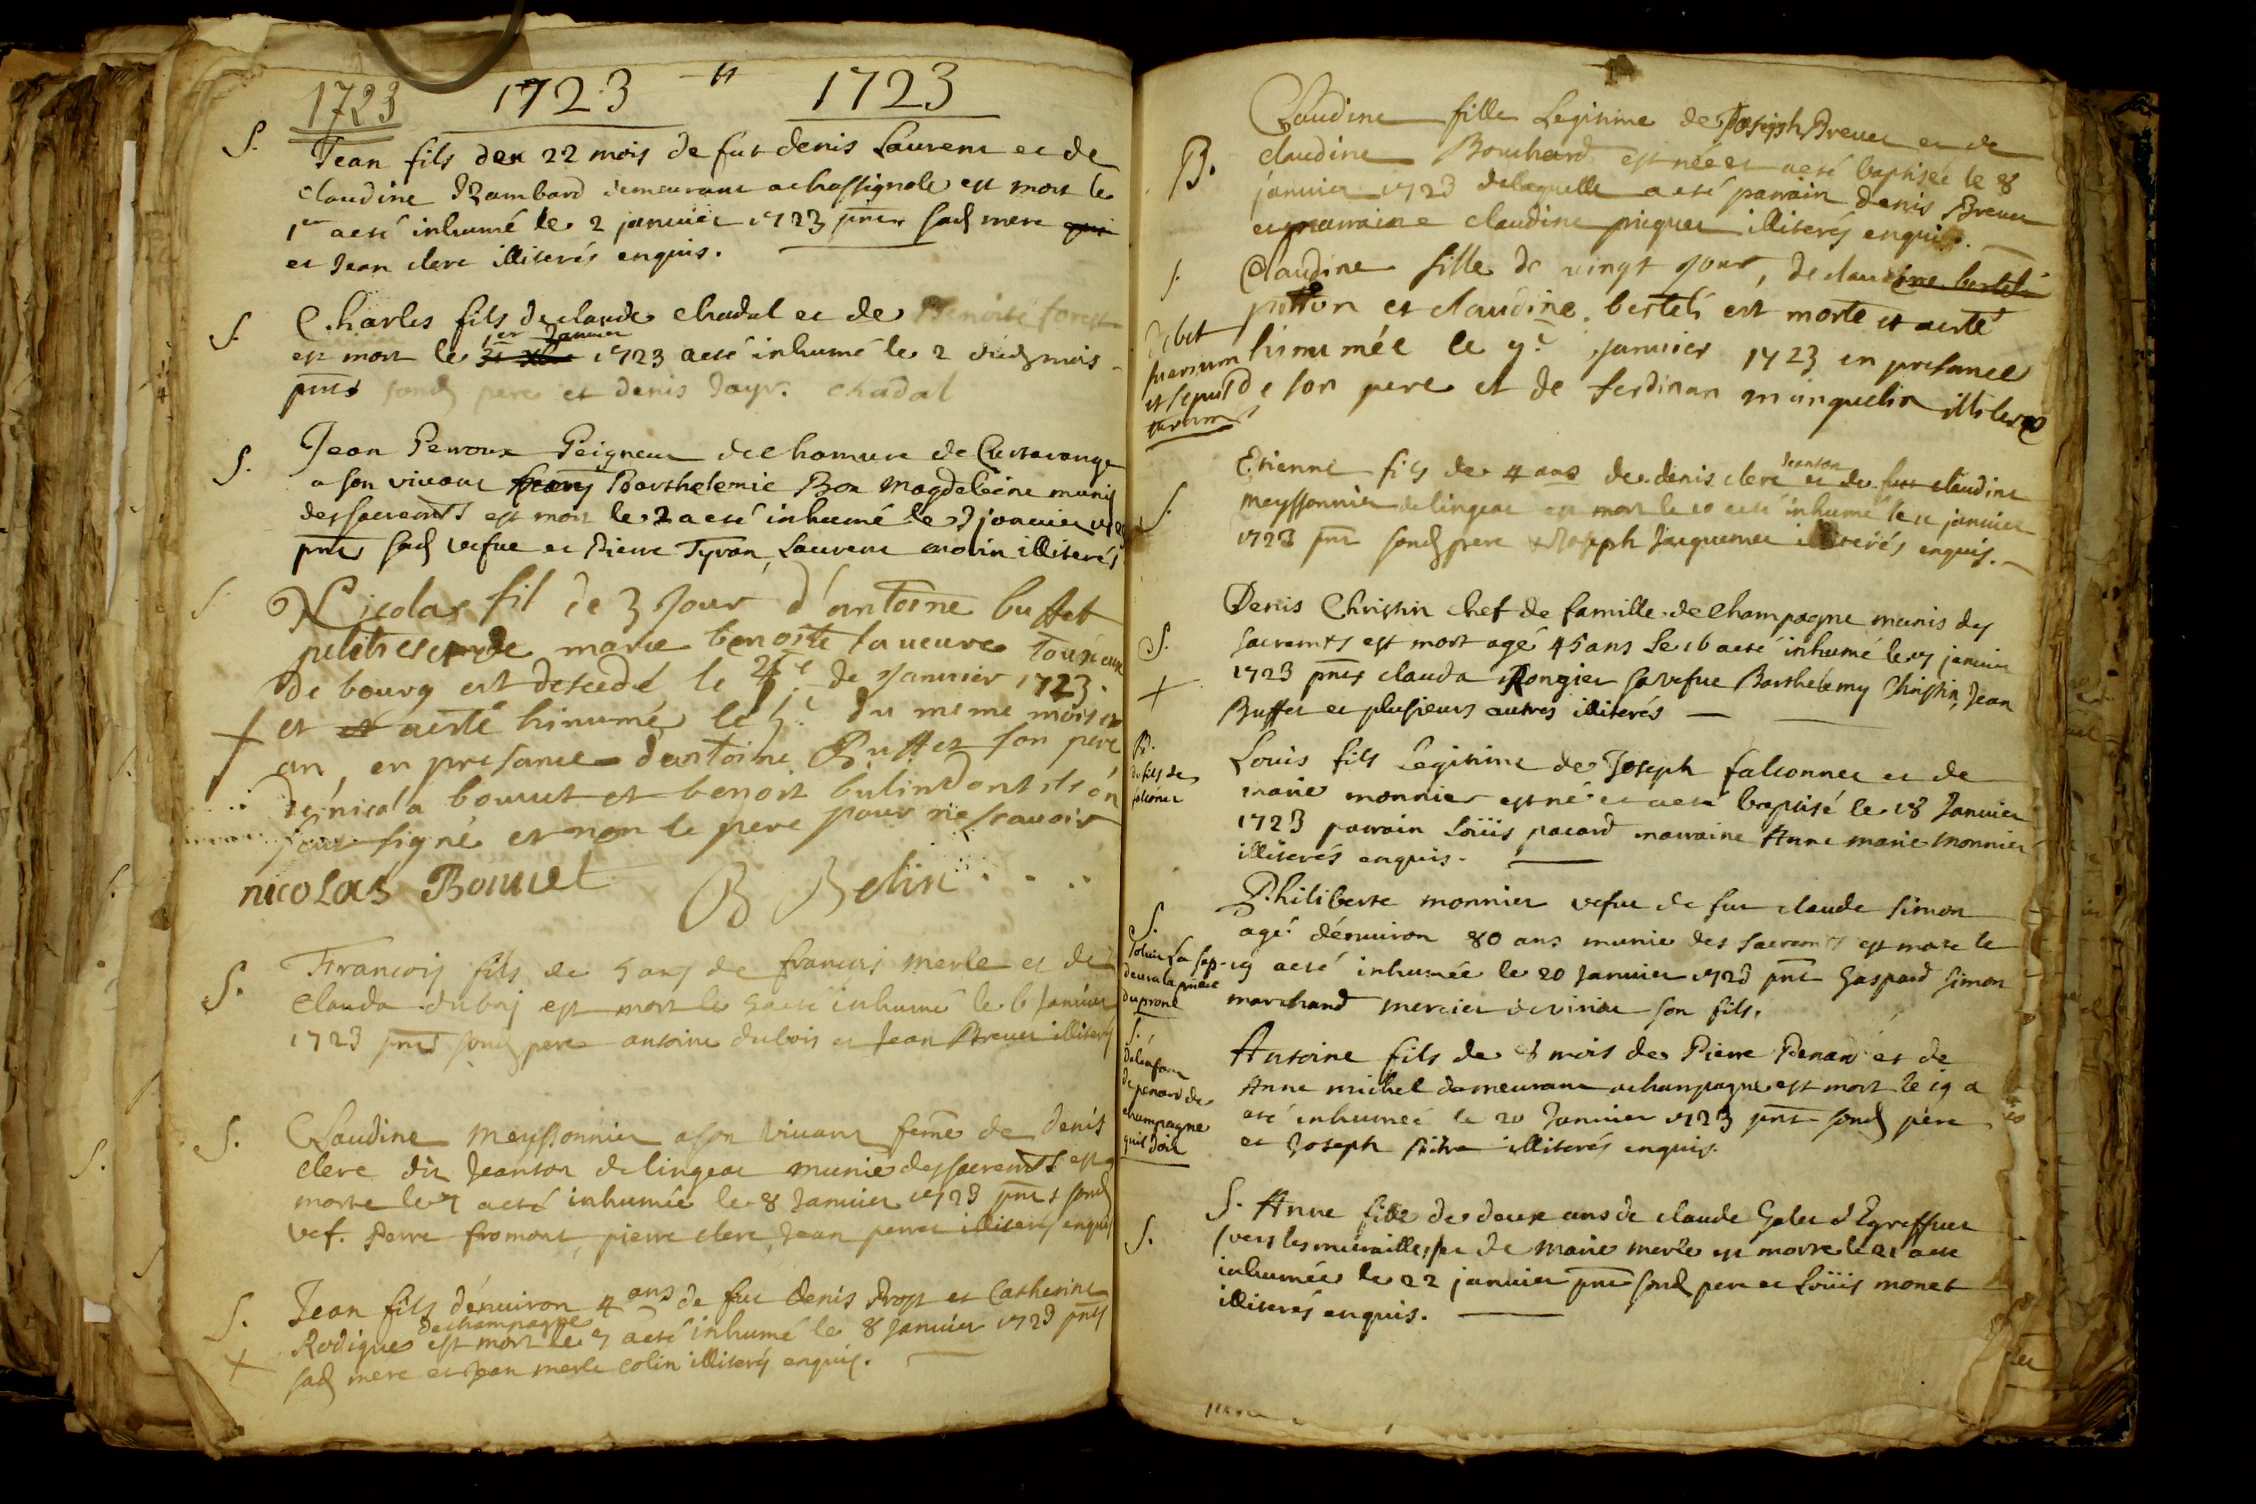 1723 1723 " 1723
S. Jean fils de 22 mois de fut denis Laurent et de
claudine Rambard demeurant achassignole est mort le
1er aeté inhumé le 2 janvier 1723 pnts sad mere qui
et Jean clerc illiterés enquis.
S. Charles fils de claude chadal et de Benoite forest
1er Janvier
est mort le 1723 aeté inhumé le 2 dud mois
pnts sond pere et denis Jayr. chadal
S. Jean Perroux Peigneur de chanure de
a son vivant Barthelemie Bon Magdeleine munis
des sacremts est mort le 2 aeté inhumé le 3 janvier
pnts sad vefue et Pierre Tyran, Laurent morin illiterés
S. Nicolas fil de 3 jour d'antoine buffet
et de marie benoite
de bourg est descedé le 4e de Janvier 1723.
+ et aesté hinumé le 5e du meme mois et
an, en presance d'antoine Buffet son pere
de nicola bouuet et benoit bulin dont ils on
sous signé et non le pere pour ne scavoir
nicolas Bouuet B Belin
S. Francois fils de 5 ans de francois merle et de
clauda duboi est mort le 5 aeté inhumé le 6 Janvier
1723 pnts sond pere antoine dubois et Jean Breuet illiterés
S. Claudine Meyssonnier a son viuant feme de Denis
clerc dit Jeanton de lingeat munie des sacremts est
morte le 7 aeté inhumée le 8 Janvier 1723 pnts sond
vef. Pierre fromont, pierre clerc, Jean perret illiterés enquis
S. Jean fils d'enuiron 4 ans de fut Denis Prost et Catherine
de champagne
+ Rodigues est mort le 7 aeté inhumé le 8 Janvier 1723 pnts
sad mere et Jean merle colin illiterés enquis.
Claudine fille Legitime de Joseph Breuet et de
B. claudine Bouchard est née et aeté baptisée le 8
janvier 1723 delaquelle a eté parrain Denis Breuet
et marraine claudine piquet illiterés enquis.
S. Claudine fille de vingt jour, de claudine bertet
potton et claudine bertet est morte et aesté
debet
hinumée le 9e janvier 1723 en presance
de son pere et de ferdinan minguelin illiteres
S. Etienne fils de 4 ans de denis clerc Jeanton et de fut claudine
meyssonnier de lingeat est mort le 10 aeté inhumé le 11 janvier
1723 pnt sond pere et Joseph Jacquemet illiterés enquis.
S. Denis Christin chef de famille de champagne munis des
sacremts est mort agé 45 ans le 16 aeté inhumé le 17 janvier
+ 1723 pnts clauda Rongier sa vefue Barthelemy Christin, Jean
Buffet et plusieurs autres illiterés
B.
du fils de
falconet
Louis fils Legitime de Joseph falconnet et de
marie monnier est né et aeté baptisé le 18 Janvier
1723 parrain Loüis pacard marraine Anne marie monnier
illiterés enquis.
S. Philiberte monnier vefue de fut claude simon
agé d'enuiron 80 ans munie des sacremts est morte le
19 aeté inhumée le 20 Janvier 1723 pnt Gaspard simon
du prone
marchand mercier son fils.
S.
de lenfant
de penard de
champagne
quil doit
Antoine fils de 8 mois de Pierre Penard et de
Anne michel demeurant a champagne est mort le 19 a
eté inhumeé le 20 Janvier 1723 pnt sond pere
et Joseph illiterés enquis.
S. S. Anne fille de deux ans de claude
(vers les murailles) et de Marie merle est morte le 21 aeté
inhumée le 22 janvier pnt sond pere et Loüis monet
illiterés enquis.